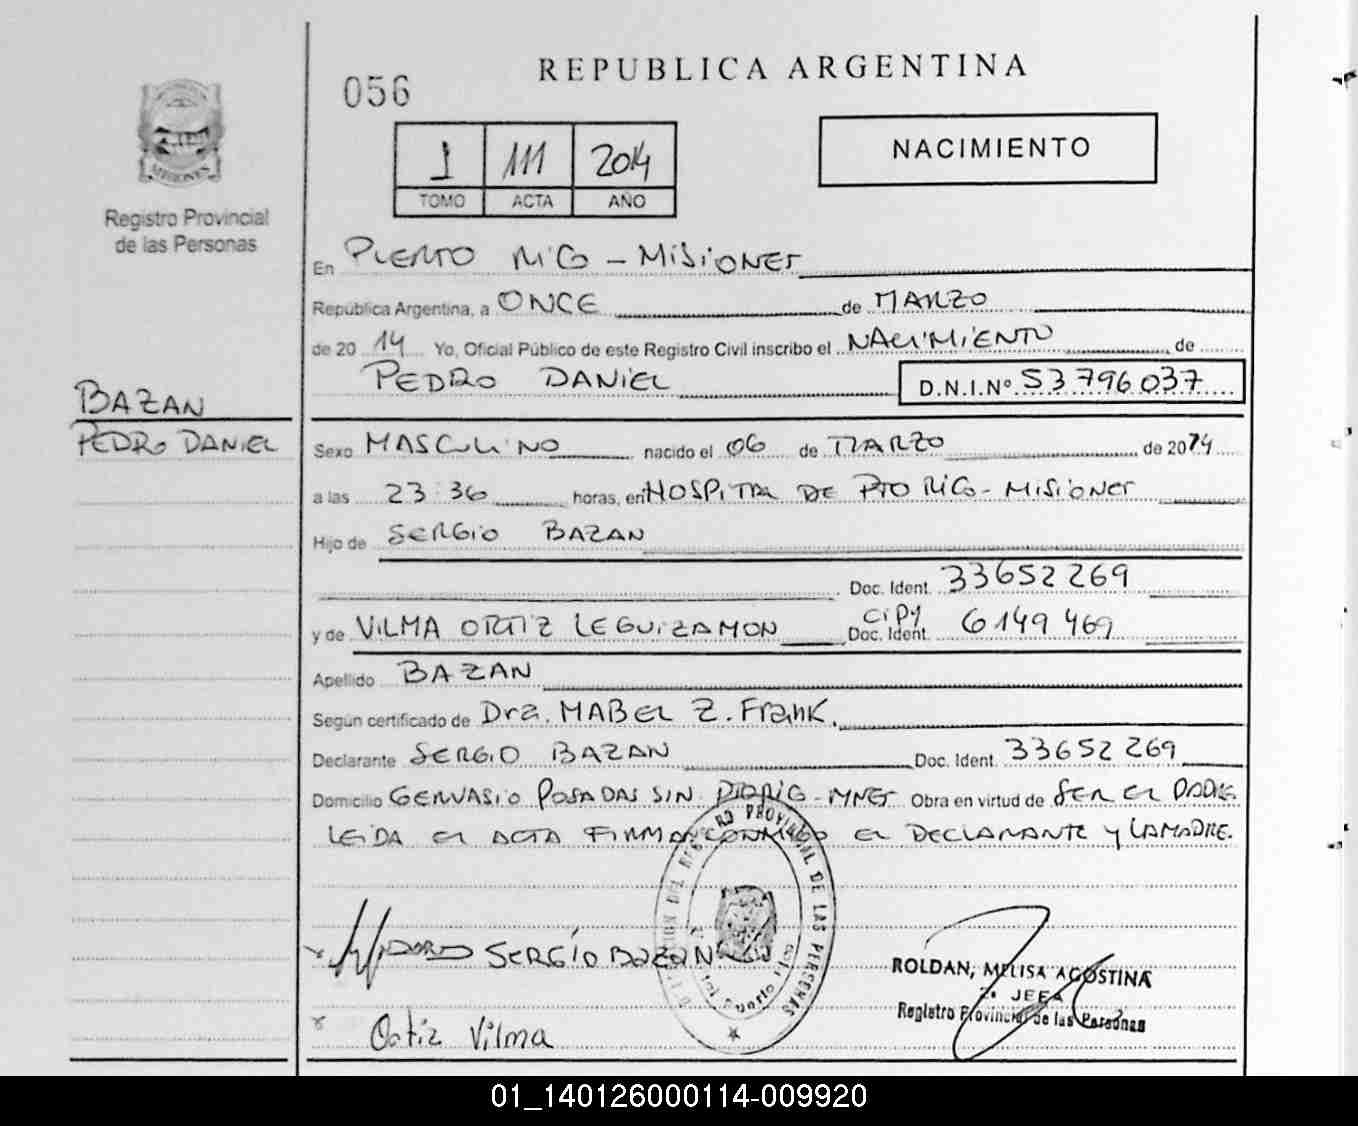 REPUBLICA ARGENTINA
056
NACIMIENTO
1 111 2014
TOMO ACTA AÑO
MISIONES
Registro Provincial
de las Personas
En PUERTO RICO - MISIONES
República Argentina, a ONCE de MARZO
de 20 14 Yo, Oficial Público de este Registro Civil inscribo el NACIMIENTO de
PEDRO DANIEL D.N.I.Nº 53796037
BAZAN
PEDRO DANIEL
Sexo MASCULINO nacido el 06 de MARZO de 2014
a las 23:36 horas, en HOSPITAL DE PTO RICO - MISIONES
Hijo de SERGIO BAZAN
Doc. Ident. 33652269
y de VILMA ORTIZ LEGUIZAMON CIPY Doc. Ident. 6149469
Apellido BAZAN
Según certificado de Dra. MABEL Z. Frank.
Declarante SERGIO BAZAN Doc. Ident. 33652269
Domicilio GERVASIO POSADAS S/N. PTO RICO - MNES Obra en virtud de SER EL PADRE
LEIDA EL ACTA FIRMAN CONMIGO EL DECLARANTE Y LA MADRE.
SERGÍO BAZAN
PROVINCIAL DE LAS PERSONAS
ROLDAN, MELISA AGOSTINA
2º JEFA
Registro Provincial de las Personas
Ortiz Vilma
01_140126000114-009920